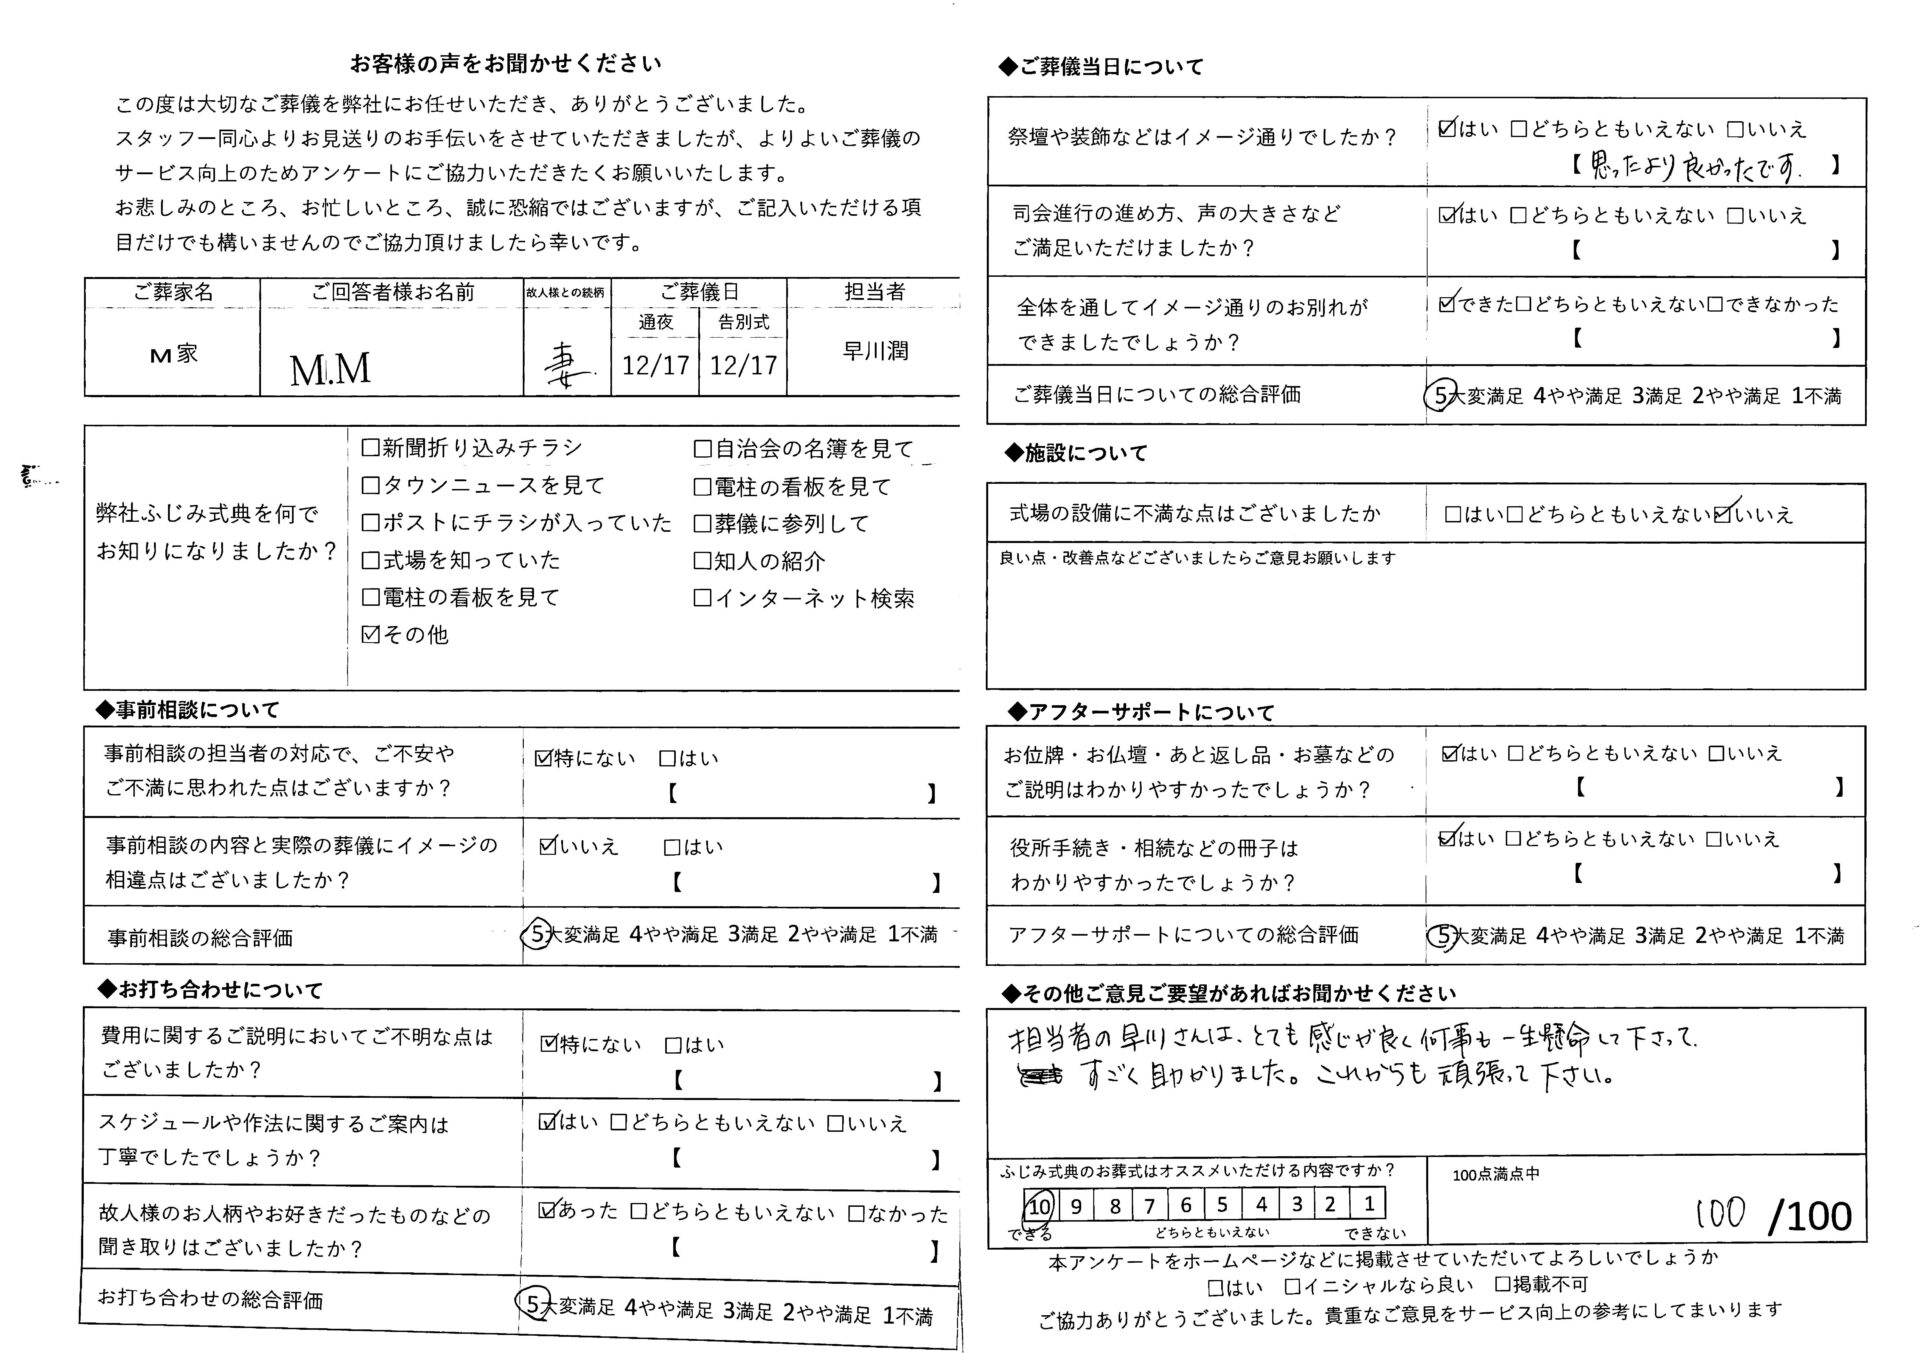 お客様の声をお聞かせください
この度は大切なご葬儀を弊社にお任せいただき、ありがとうございました。
スタッフ一同心よりお見送りのお手伝いをさせていただきましたが、よりよいご葬儀の
サービス向上のためアンケートにご協力いただきたくお願いいたします。
お悲しみのところ、お忙しいところ、誠に恐縮ではございますが、ご記入いただける項
目だけでも構いませんのでご協力頂けましたら幸いです。
ご葬家名 ご回答者様お名前 故人様との続柄 ご葬儀日 担当者
通夜 告別式
M家 M.M 妻 12/17 12/17 早川潤
弊社ふじみ式典を何で
お知りになりましたか？
☐新聞折り込みチラシ ☐自治会の名簿を見て
☐タウンニュースを見て ☐電柱の看板を見て
☐ポストにチラシが入っていた ☐葬儀に参列して
☐式場を知っていた ☐知人の紹介
☐電柱の看板を見て ☐インターネット検索
☑その他
◆事前相談について
事前相談の担当者の対応で、ご不安や
ご不満に思われた点はございますか？
☑特にない ☐はい
【 】
事前相談の内容と実際の葬儀にイメージの
相違点はございましたか？
☑いいえ ☐はい
【 】
事前相談の総合評価 5大変満足 4やや満足 3満足 2やや満足 1不満
◆お打ち合わせについて
費用に関するご説明においてご不明な点は
ございましたか？
☑特にない ☐はい
【 】
スケジュールや作法に関するご案内は
丁寧でしたでしょうか？
☑はい ☐どちらともいえない ☐いいえ
【 】
故人様のお人柄やお好きだったものなどの
聞き取りはございましたか？
☑あった ☐どちらともいえない ☐なかった
【 】
お打ち合わせの総合評価 5大変満足 4やや満足 3満足 2やや満足 1不満
◆ご葬儀当日について
祭壇や装飾などはイメージ通りでしたか？
☑はい ☐どちらともいえない ☐いいえ
【思ったより良かったです.】
司会進行の進め方、声の大きさなど
ご満足いただけましたか？
☑はい ☐どちらともいえない ☐いいえ
【 】
全体を通してイメージ通りのお別れが
できましたでしょうか？
☑できた☐どちらともいえない☐できなかった
【 】
ご葬儀当日についての総合評価 5大変満足 4やや満足 3満足 2やや満足 1不満
◆施設について
式場の設備に不満な点はございましたか ☐はい☐どちらともいえない☑いいえ
良い点・改善点などございましたらご意見お願いします
◆アフターサポートについて
お位牌・お仏壇・あと返し品・お墓などの
ご説明はわかりやすかったでしょうか？
☑はい ☐どちらともいえない ☐いいえ
【 】
役所手続き・相続などの冊子は
わかりやすかったでしょうか？
☑はい ☐どちらともいえない ☐いいえ
【 】
アフターサポートについての総合評価 5大変満足 4やや満足 3満足 2やや満足 1不満
◆その他ご意見ご要望があればお聞かせください
担当者の早川さんは、とても感じが良く何事も一生懸命して下さって、
すごく助かりました。これからも頑張って下さい。
ふじみ式典のお葬式はオススメいただける内容ですか？
10 9 8 7 6 5 4 3 2 1
できる どちらともいえない できない
100点満点中
100 /100
本アンケートをホームページなどに掲載させていただいてよろしいでしょうか
☐はい ☐イニシャルなら良い ☐掲載不可
ご協力ありがとうございました。貴重なご意見をサービス向上の参考にしてまいります